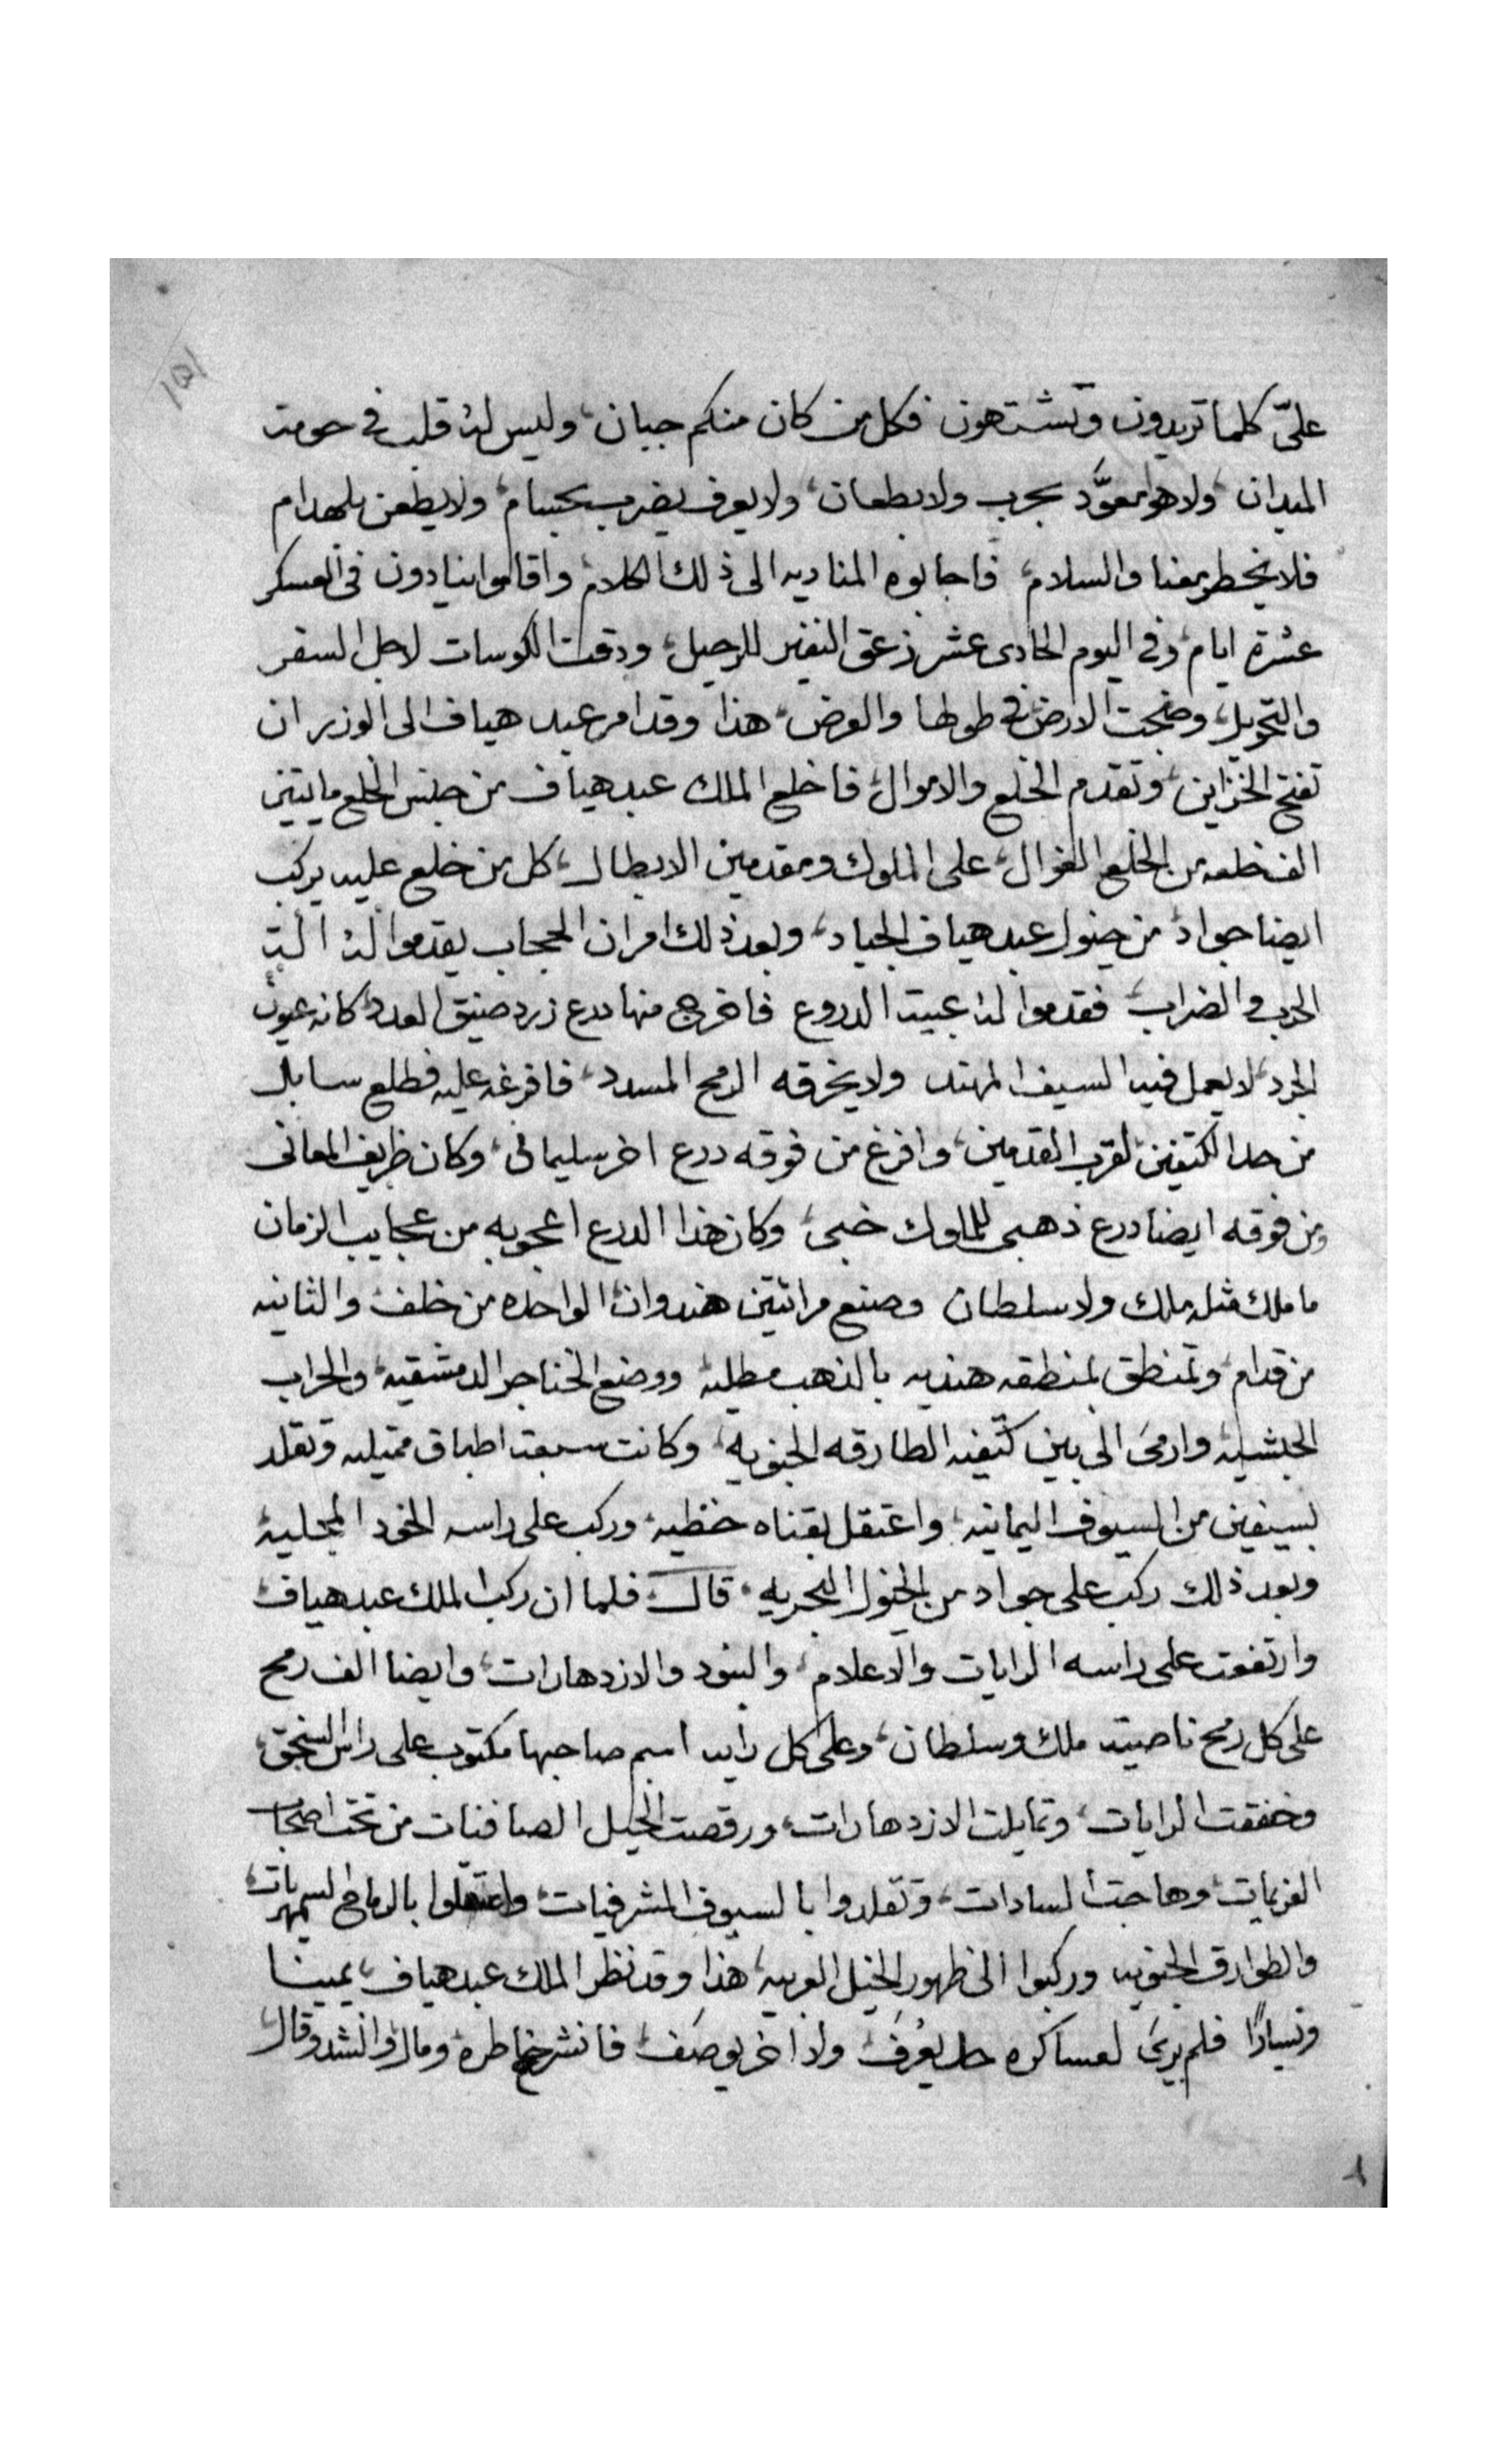 ١٥١
علىّ كلما تريدون وتشتهون فكل من كان منكم جبان، وليس له قلب في حومت
الميدان، ولا هو معوَّد بحرب ولا بطعان، ولا يعرف يضرب بحسام، ولا يطعن بلهدام
فلا يخطر معنا والسلام، فاجابوه المناديه الى ذلك الكلام، واقاموا ينادون في العسكر
عشرة ايام، وفي اليوم الحادى عشر زعق النفير للرحيل، ودقت الكوسات لاجل السفر
والتحويل، وضجت الارض في طولها والعرض، هذا وقد امر عبد هياف الى الوزير ان
تفتح الخزاين، وتقدم الخلع والاموال، فاخلع الملك عبد هياف من جنس الخلع مايتين
الف خلعه من الخلع الغوال، على الملوك ومقدمين الابطال، كل من خلع عليه يركب
ايضا جواد من خيول عبد هياف الجياد، وبعد ذلك امر ان الحجاب يقدموا له الت
الحرب والضراب، فقدموا له عيبت الدروع فاخرج منها درع زرد ضيق العدد كانه عيون
الجرد، لا يعمل فيه السيف المهند ولا يخرقه الرمح المسدد، فافرغه عليه فطلع سابل
من حد الكتفين لقرب القدمين، وافرغ من فوقه درع اخر سليمانى، وكان ظريف المعانى
ومن فوقه ايضا درع ذهبى للملوك خبى، وكان هذا الدرع اعجوبه من عجايب الزمان
ما ملك مثله ملك ولا سلطان وصنع مرائتين هندوان الواحده من خلف والثانيه
من قدام، وتمنطق بمنطقه هنديه بالذهب مطليه ووضع الخناجر الدمشقيه، والحراب
الحبشيه، وارمى الى بين كتفيه الطارقه الجنويه، وكانت سبعت اطباق متيله وتقلد
بسيفين من السيوف اليمانيه، واعتقل بقناه خطيه، وركب على راسه الخود المجليه
وبعد ذلك ركب على جواد من الخيول البحريه، قال فلما ان ركب الملك عبد هياف
وارتفعت على راسه الرايات والاعلام، والبنود والازدهارات، وايضا الف رمح
على كل رمح ناصيت ملك وسلطان، وعلى كل رايه اسم صاحبها مكتوب على راس السنجق،
وخفقت الرايات، وتمايلت الازدهارات، ورقصت الخيل الصافنات من تحت اصحاب
العزيمات، وهاجت السادات، وتقلدوا بالسيوف المشرفيات، واعتقلوا بالرماح السمهريات
والطوارق الجنويه وركبوا الى ظهور الخيل العربيه، هذا وقد نظر الملك عبد هياف، يمينا
ويسارًا فلم يرى لعساكره حد يعُرف ولا اخر يوصَف، فانشرح خاطره، ومال وانشد وقال